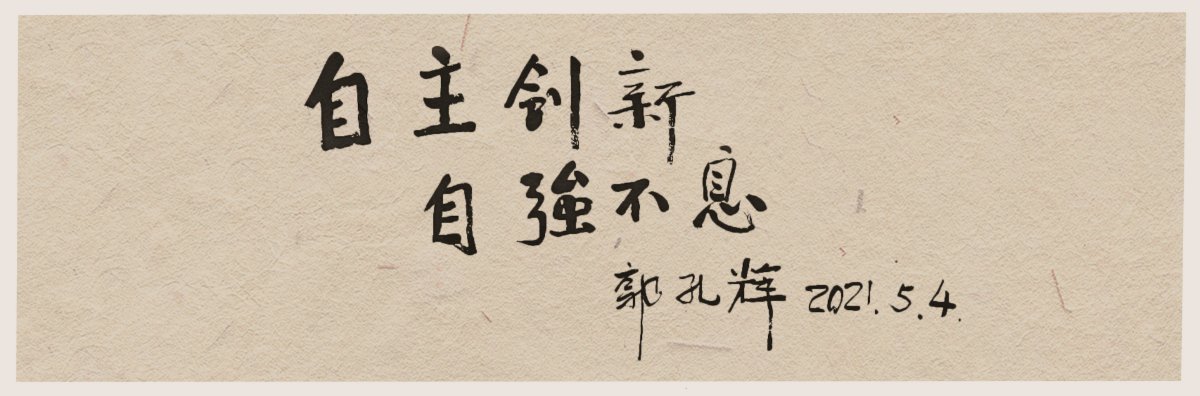 自主创新
自強不息
郭孔辉 2021.5.4.